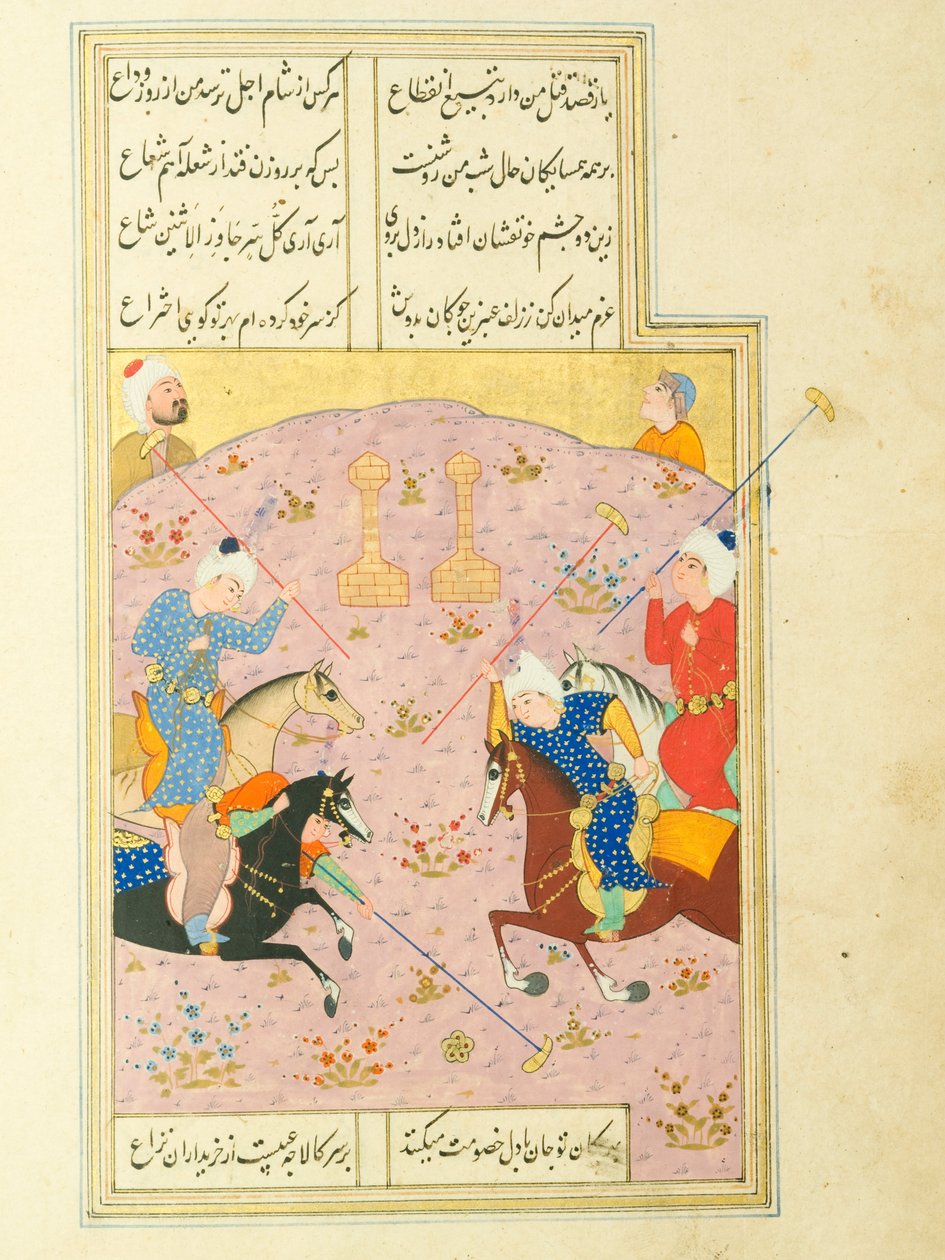 باز قصد قتل من دارد بتیغ انقطاع هر کس از شام اجل ترسد من از روز وداع
بر همه همسایکان حال شب من روشنست بس که بر روزن فتد از شعله آهم شعاع
زین دو چشم خونفشان افتاد راز دل بروی آری آری کُلُّ سِرٍّ جَاوَزَ الاِثنین شاع
عزم میدان کن ز زلف عنبرین چوکان بدوش کز سر خود کرده ام بهر تو کویی اختراع
تو جان با دل خصومت میکند بر سر کالا چه عیبست از خریداران نزاع